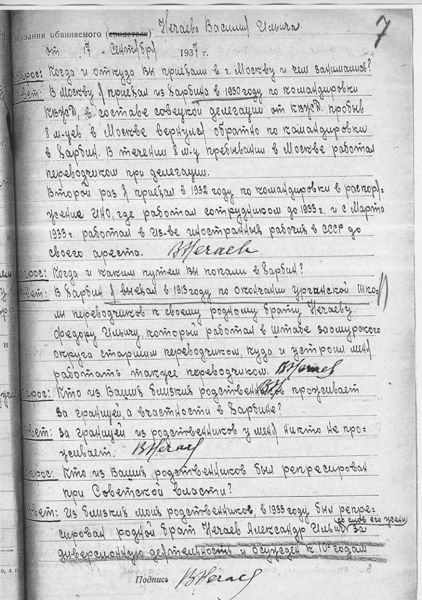 7
показания обвиняемого (свидетеля) Нечаева Василия Ильича
от 17 Сентября 1937 г.
Вопрос: Когда и откуда вы приехали в г. Москву и чем занимались?
Ответ: В Москву я приехал из Харбина в 1930 году по командировки
КВЖД, в составе советской делегации от КВЖД. Пробыв
8 м-цев в Москве вернулся обратно по командировки
в Харбин. В течении 8 м-ц пребывания в Москве работал
переводчиком при делегации.
Второй раз я приехал в 1932 году по командировки в распор/
жение ИНО, где работал сотрудником до 1933 г. и с Марта
1933 г. работал в Из-ве иностранных рабочих в СССР до
своего ареста. ВНечаев
Вопрос: Когда и каким путем вы попали в Харбин?
Ответ: В Харбин я выехал в 1913 году по окончании Ургинской шко
лы переводчиков к своему родному брату Нечаеву
Федору Ильичу, который работал в штабе заамурского
округа старшим переводчиком, куда и устроил меня
работать также переводчиком. ВНечаев
Вопрос: Кто из Ваших близких родственников проживает
за границей, а в частности в Харбине?
Ответ: За границей из родственников у меня никто не про-
живает. ВНечаев
Вопрос: Кто из Ваших родственников был репресирован
при Советской власти?
Ответ: Из близких моих родственников, в 1933 году, был репре-
сирован родной брат Нечаев Александр Ильич за
диверсионную деятельность и осужден к 10 годам
Подпись ВНечаев